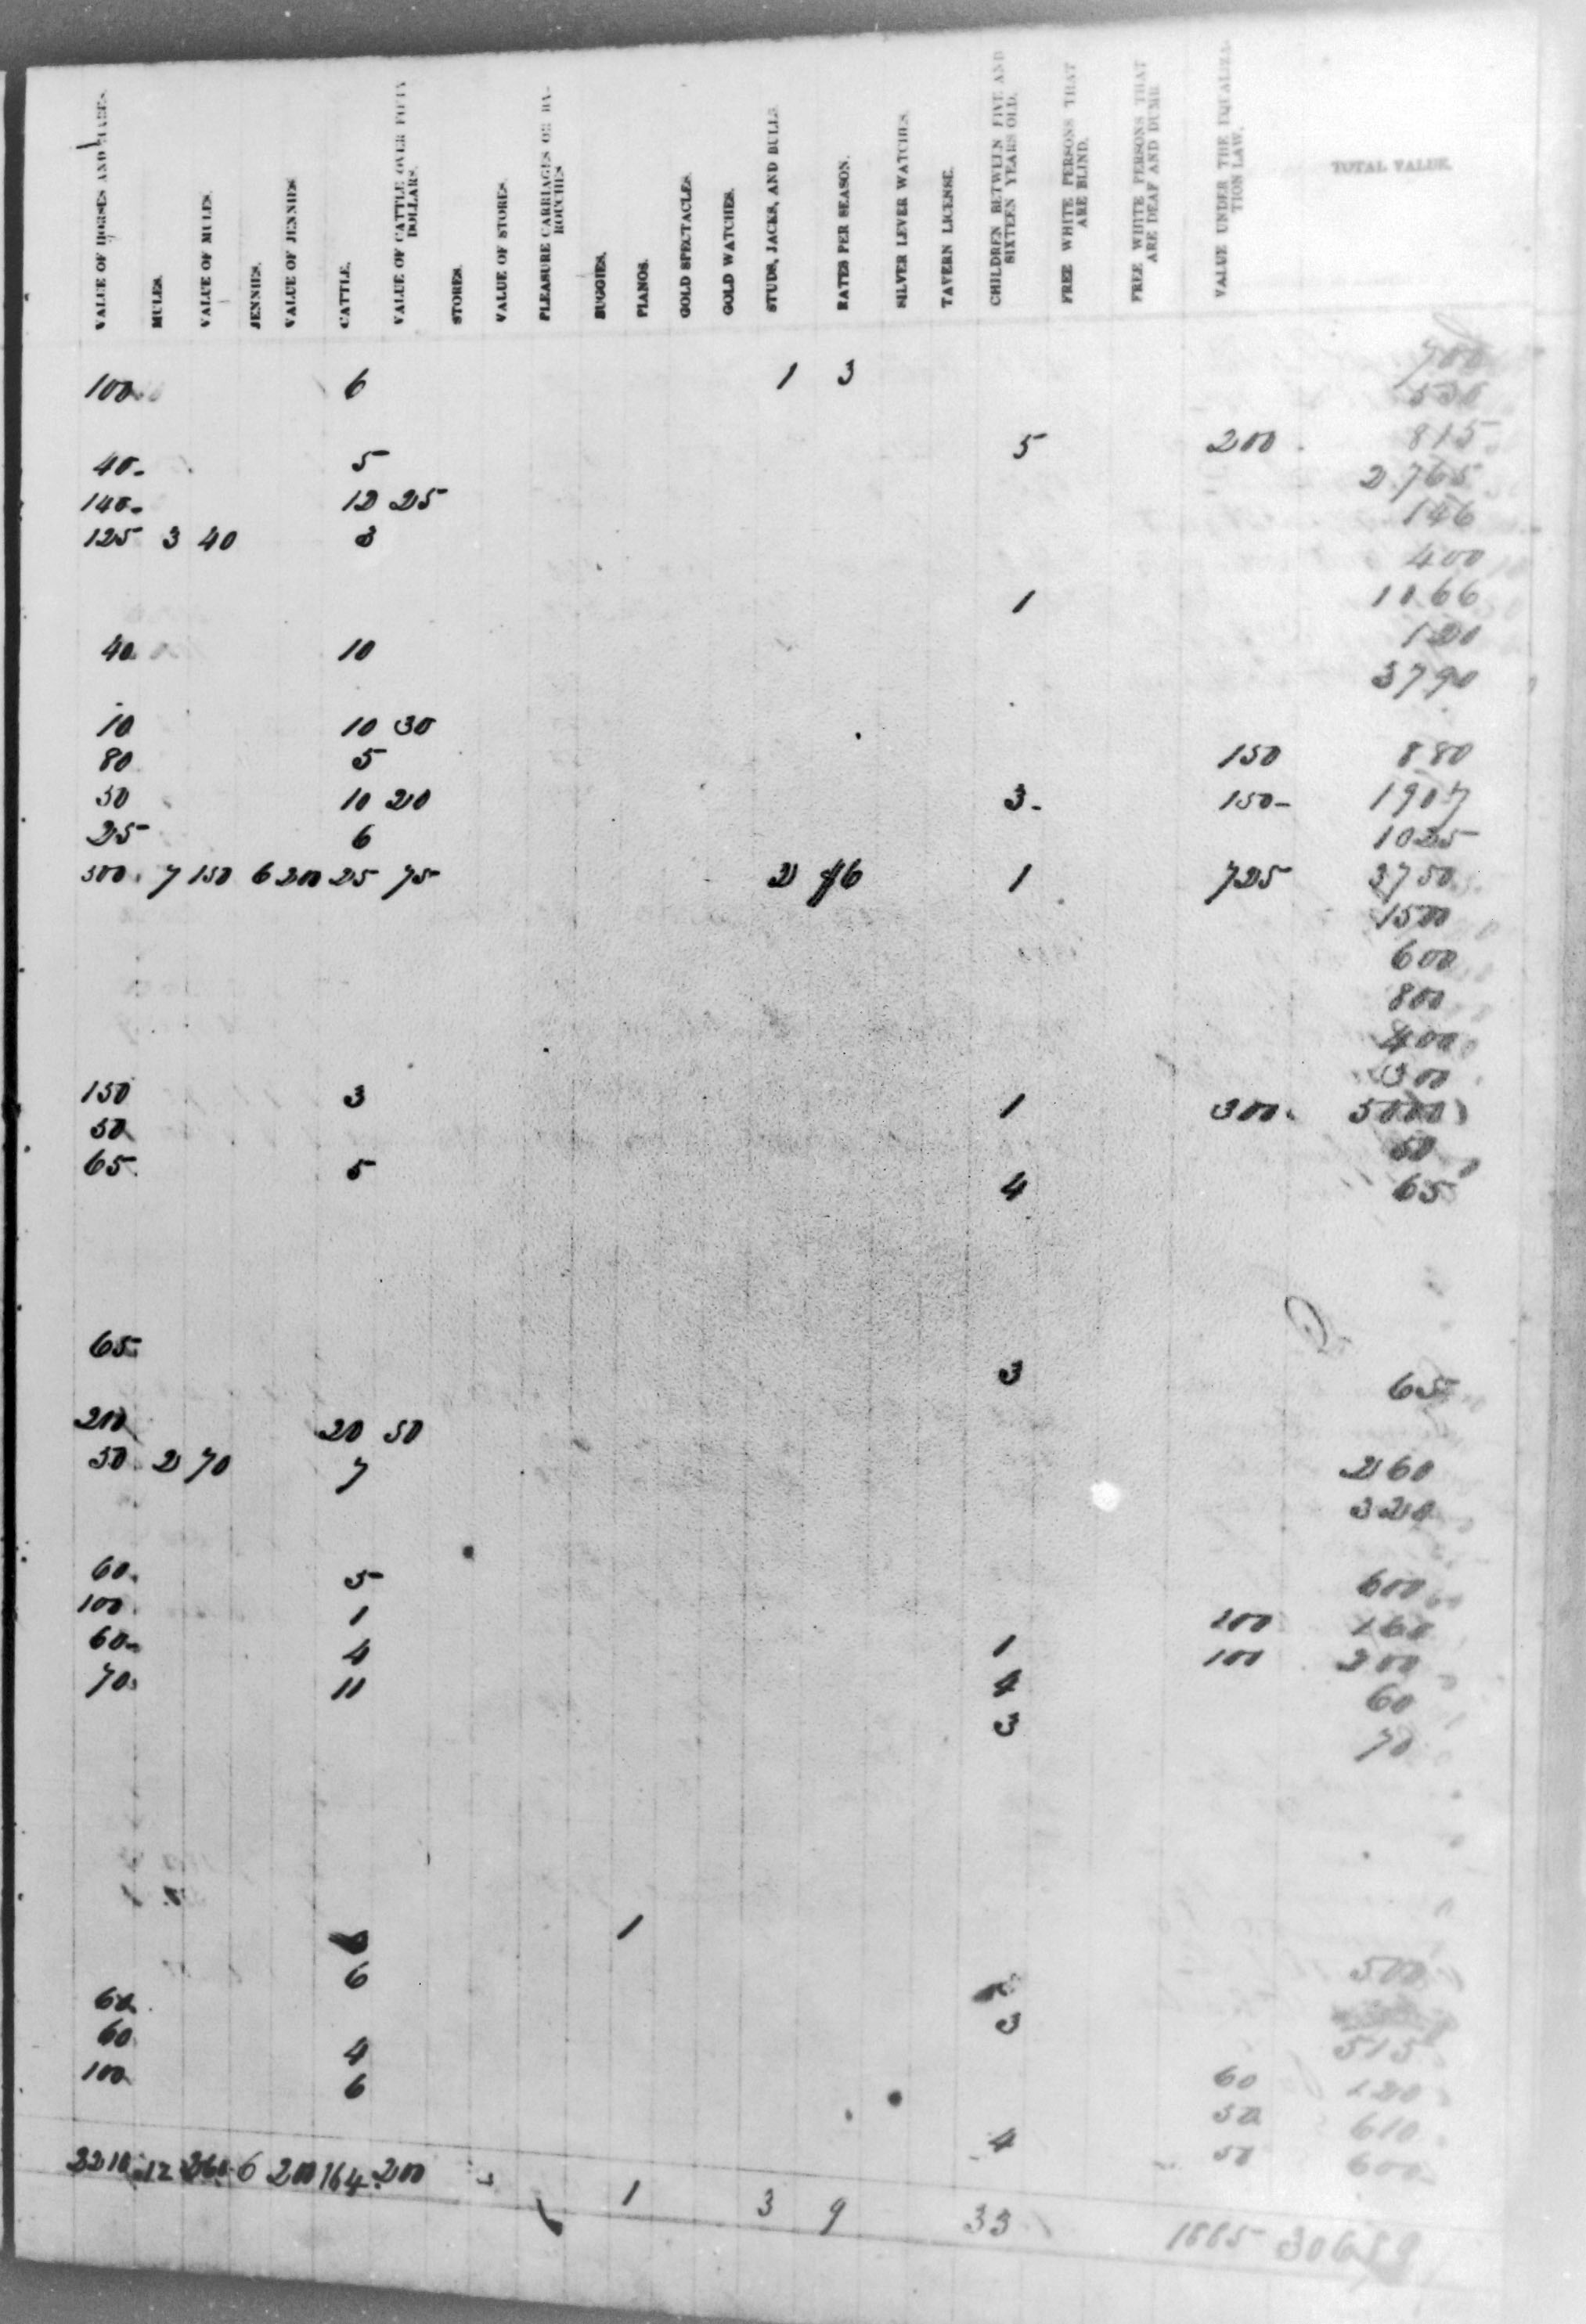 VALUE OF HORSES AND MARES. MULES. VALUE OF MULES. JENNIES. VALUE OF JENNIES. CATTLE. VALUE OF CATTLE OVER FIFTY DOLLARS. STORES. VALUE OF STORES. PLEASURE CARRIAGES OR BA-ROUCHES BUGGIES. PIANOS. GOLD SPECTACLES. GOLD WATCHES. STUDS, JACKS, AND BULLS. RATES PER SEASON. SILVER LEVER WATCHES. TAVERN LICENSE. CHILDREN BETWEEN FIVE AND SIXTEEN YEARS OLD. FREE WHITE PERSONS THAT ARE BLIND. FREE WHITE PERSONS THAT ARE DEAF AND DUMB. VALUE UNDER THE EQUALIZA-TION LAW. TOTAL VALUE.
700
100 6 1 3 550
5 200 815
40 5 2765
140 12 25 146
125 3 40 3 400
1 1066
40 10 120
3790
10 10 30
80 5 150 880
50 10 20 3 150 1907
25 6 1025
500 7 150 6 200 25 75 2 6 1 725 3750
1500
600
800
400
300
150 3 1 300 5000
50 50
65 5 4 65
65 3 65
200 20 50
50 2 70 7 260
320
60 5 600
100 1 200 160
60 4 1 100 200
70 11 4 60
3 70
1
6 500
60 3
60 4 515
100 6 60 120
50 610
4 50 600
2210 12 260 6 200 164 200 1 3 9 33 1885 30689